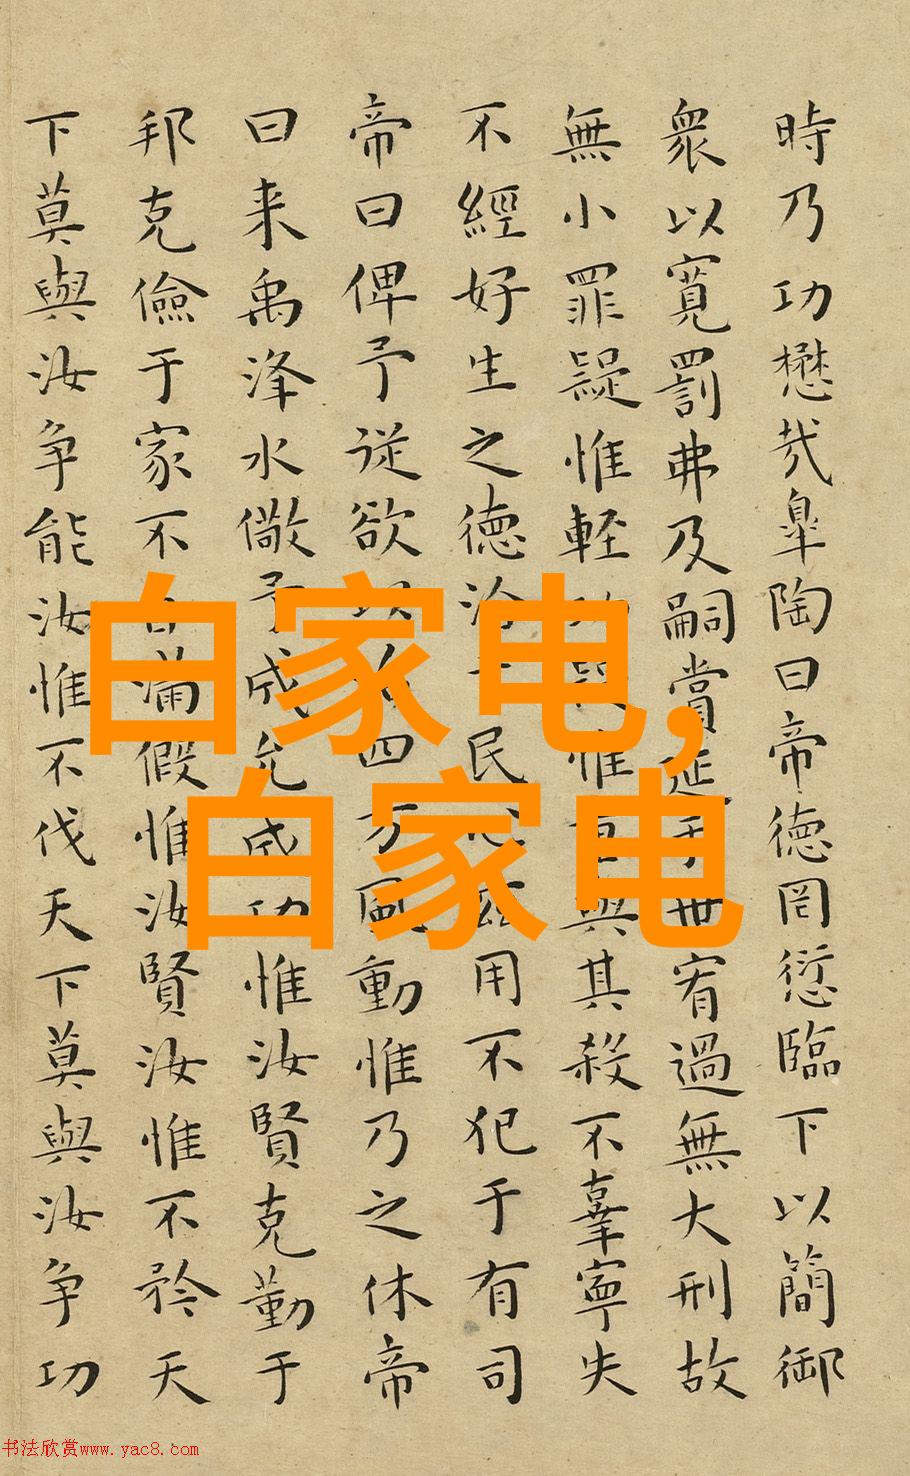 時乃功懋哉皐陶曰帝徳罔愆臨下以簡御
衆以寛罰弗及嗣賞延于世宥過無大刑故
無小罪疑惟輕功疑惟重與其殺不辜寧失
不經好生之徳洽于民心茲用不犯于有司
帝曰俾予従欲以治四方風動惟乃之休帝
曰来禹洚水儆予成允成功惟汝賢克勤于
邦克儉于家不自滿假惟汝賢汝惟不矜天
下莫與汝争能汝惟不伐天下莫與汝争功
白家电,
白家电
书法欣赏www.yac8.com